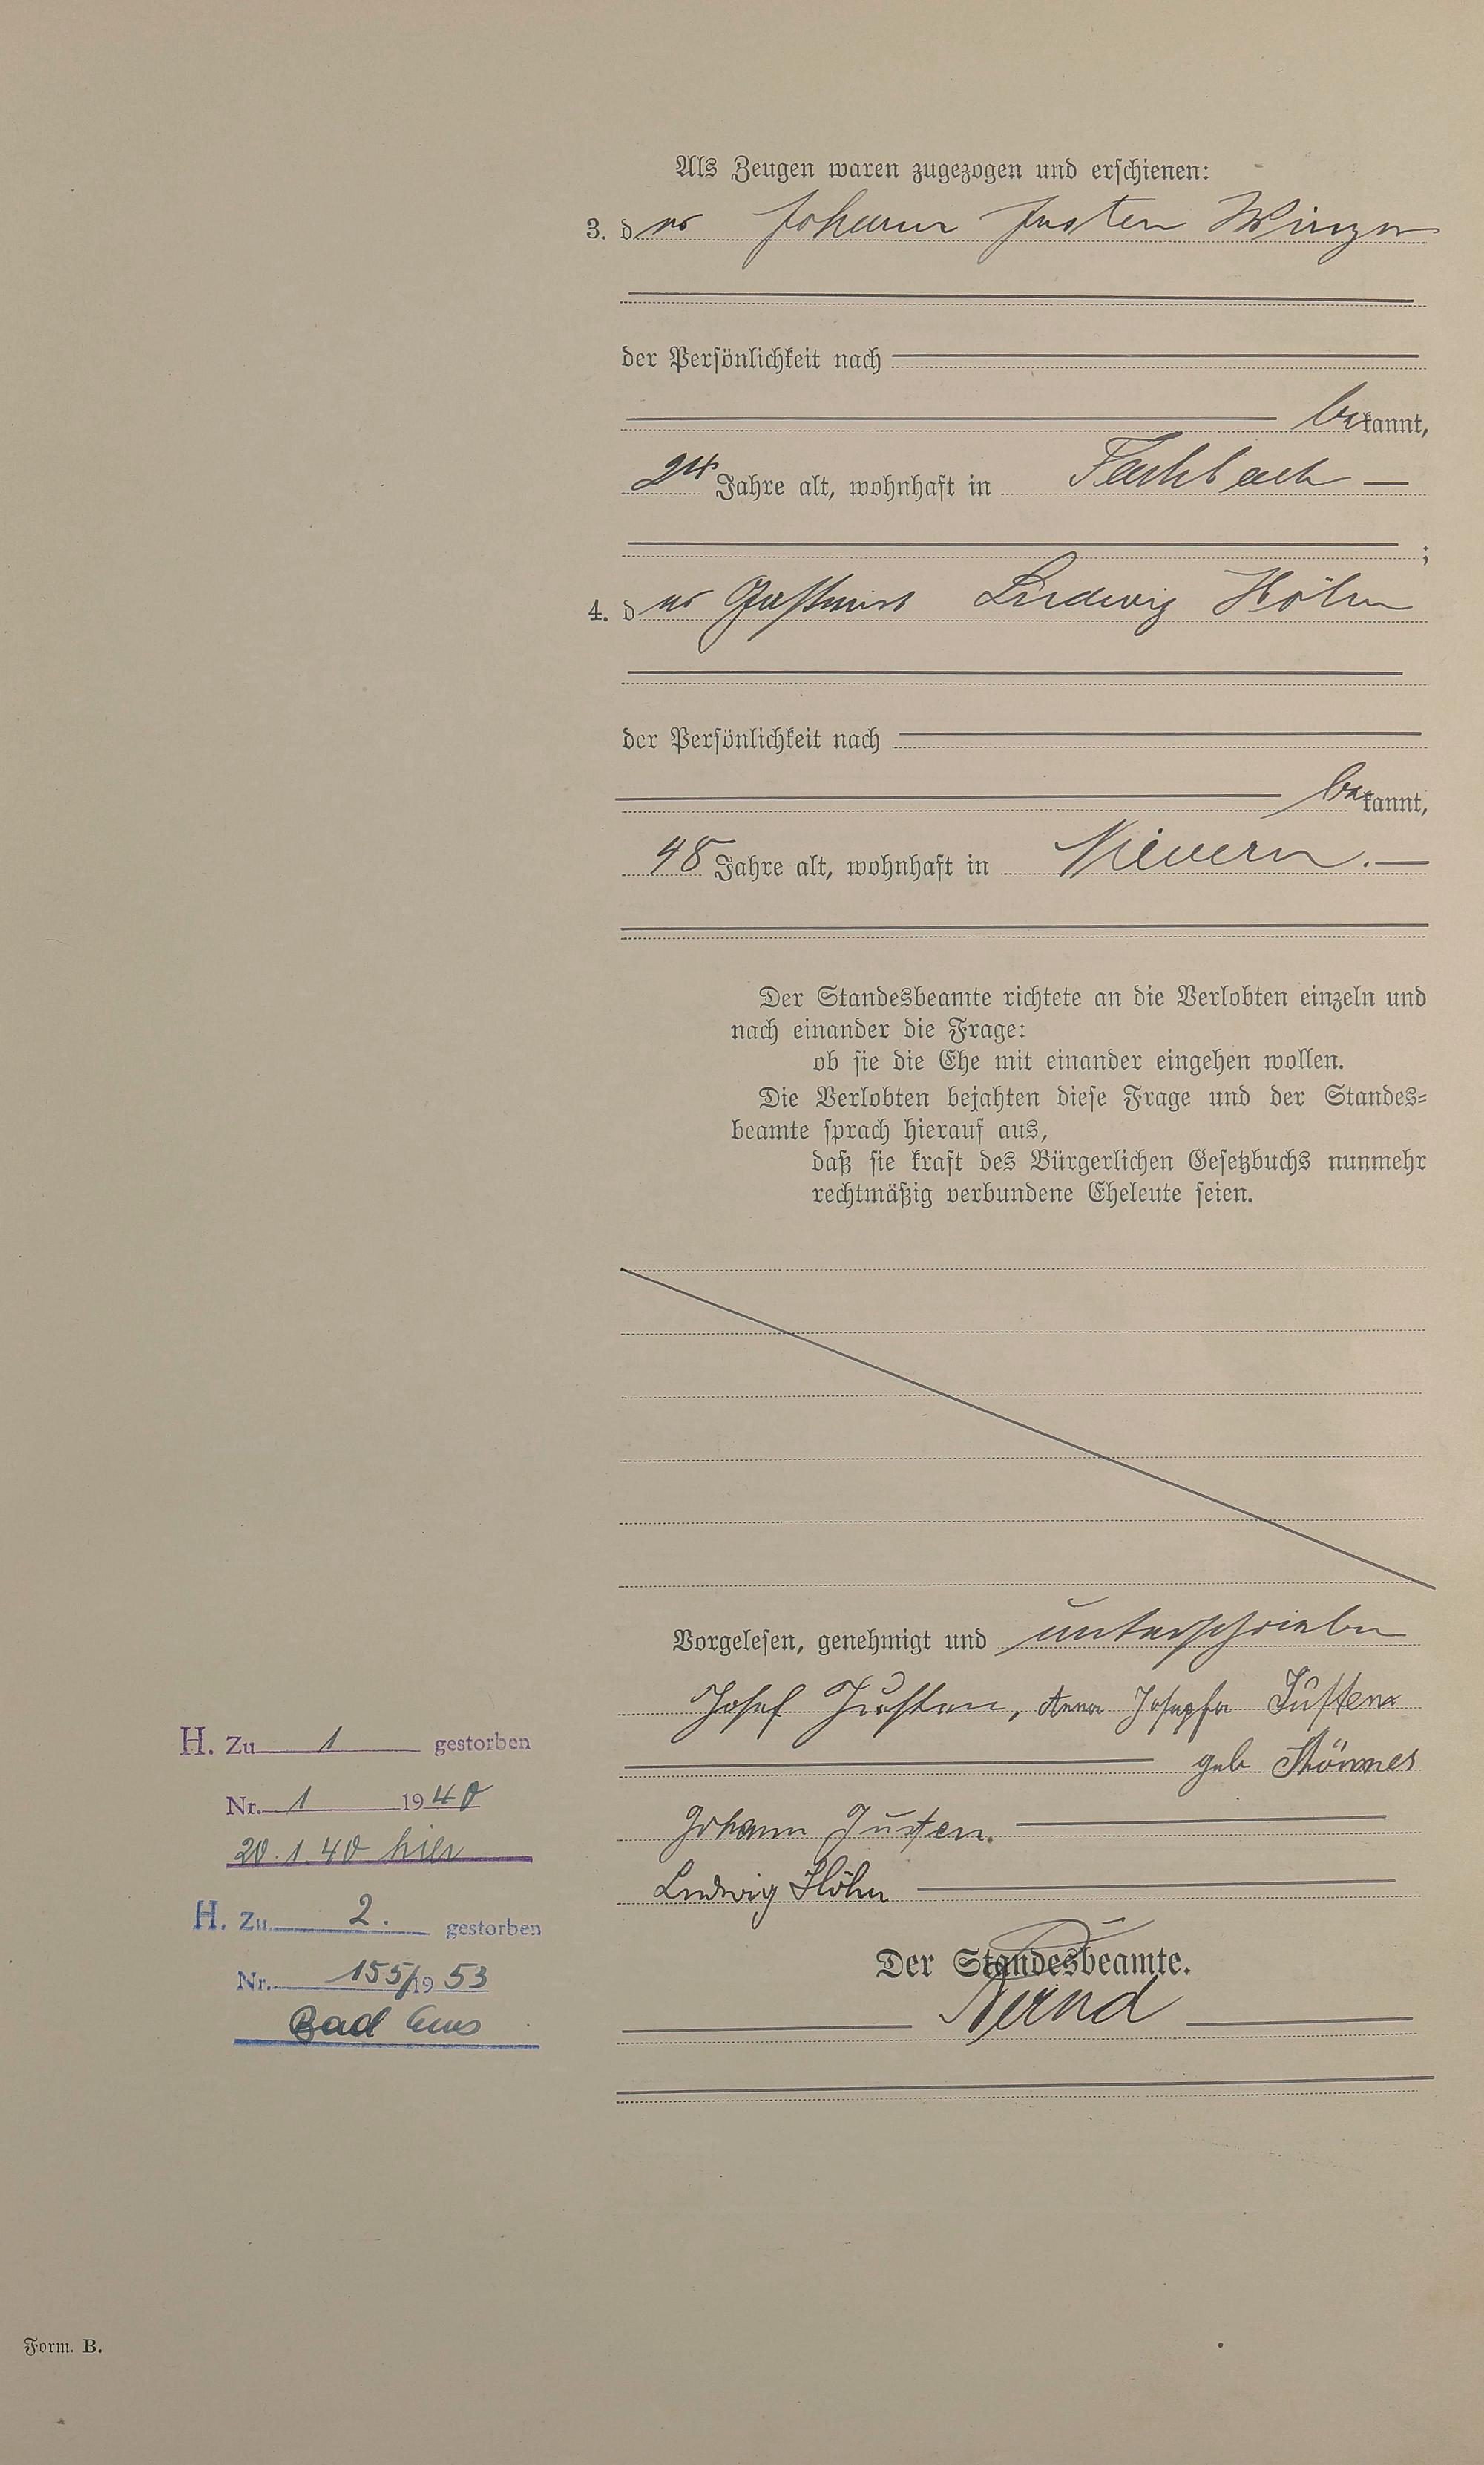 Als Zeugen waren zugezogen und erschienen:
3. der Johann Justen Winzer
der Persönlichkeit nach
bekannt,
24 Jahre alt, wohnhaft in Fachbach
;
4. der Gastwirt Ludwig Höhn
der Persönlichkeit nach
bekannt,
48 Jahre alt, wohnhaft in Nievern.
Der Standesbeamte richtete an die Verlobten einzeln und
nach einander die Frage:
ob sie die Ehe mit einander eingehen wollen.
Die Verlobten bejahten diese Frage und der Standes=
beamte sprach hierauf aus,
daß sie kraft des Bürgerlichen Gesetzbuchs nunmehr
rechtmäßig verbundene Eheleute seien.
Vorgelesen, genehmigt und unterschrieben
Josef Justen, Anna Josepha Justen
geb
Johann Justen.
Ludwig Höhn
Der Standesbeamte.
H. Zu 1 gestorben
Nr. 1 1940
20.1.40 hier
H. Zu 2. gestorben
Nr. 155/1953
Bad Ems
Form. B.